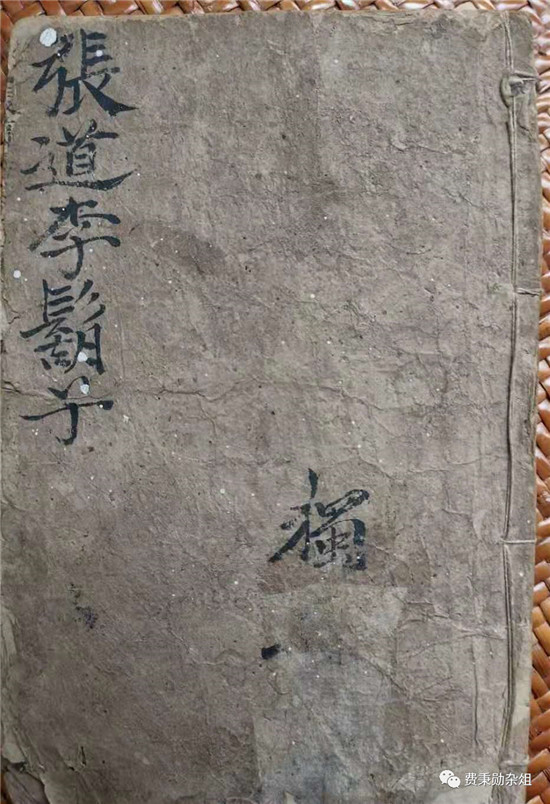 張道李鬍子
费秉勋杂俎